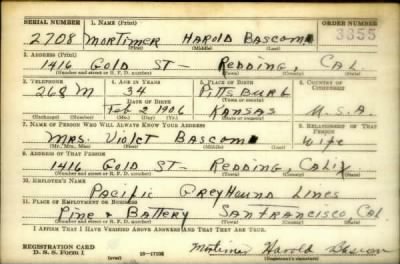 SERIAL NUMBER 1. NAME (Print) ORDER NUMBER
2708 Mortimer Harold Bascom 3355
(First) (Middle) (Last)
2. ADDRESS (Print)
1416 Gold St— Redding, Cal.
(Number and street or R. F. D. number) (Town) (County) (State)
3. TELEPHONE 4. AGE IN YEARS 5. PLACE OF BIRTH 6. COUNTRY OF CITIZENSHIP
268 M 34 Pittsburg
DATE OF BIRTH (Town or county)
Feb 2 1906 Kansas U.S.A.
(Exchange) (Number) (Mo.) (Day) (Yr.) (State or country)
7. NAME OF PERSON WHO WILL ALWAYS KNOW YOUR ADDRESS 8. RELATIONSHIP OF THAT PERSON
Mrs. Violet Bascom Wife
(Mr., Mrs., Miss) (First) (Middle) (Last)
9. ADDRESS OF THAT PERSON
1416 Gold St— Redding, Calif
(Number and street or R. F. D. number) (Town) (County) (State)
10. EMPLOYER'S NAME
Pacific Greyhound Lines
11. PLACE OF EMPLOYMENT OR BUSINESS
Pine & Battery San Francisco Cal.
(Number and street or R. F. D. number) (Town) (County) (State)
I AFFIRM THAT I HAVE VERIFIED ABOVE ANSWERS AND THAT THEY ARE TRUE.
REGISTRATION CARD
D. S. S. Form 1 (over) Mortimer Harold Bascom